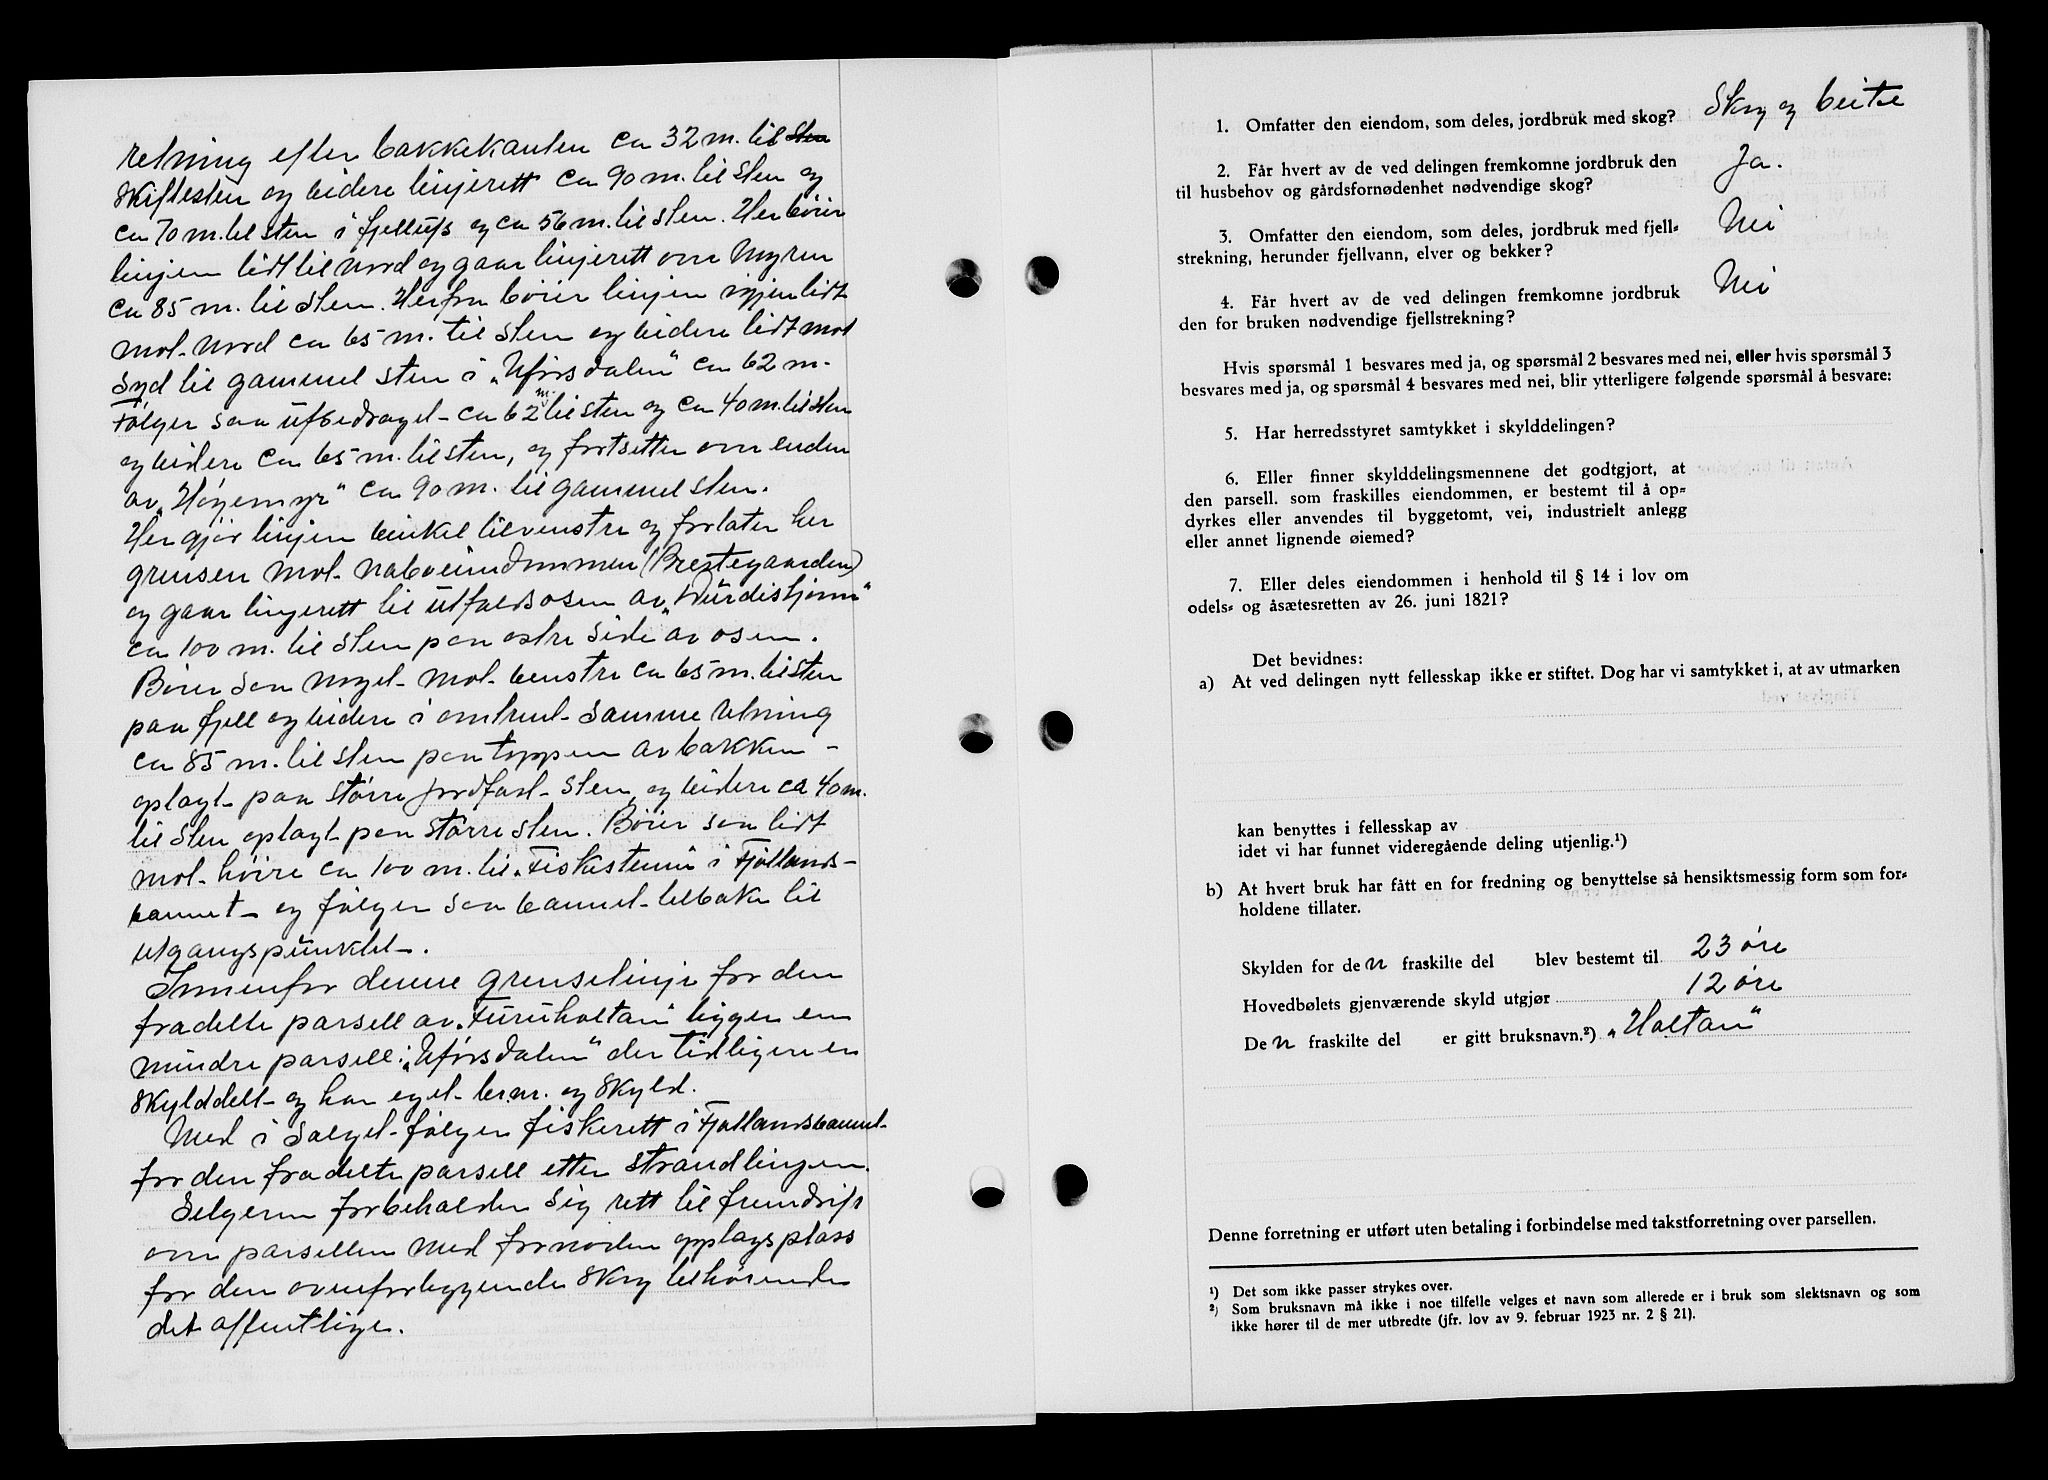 retning efter bakkekanten ca 32 m. til sten
skiftesten og videre linjerett ca 90 m. til sten og
ca 70 m. til sten i fjellufs og ca 56 m. til sten. Her böier
linjen lidt til Nord og gaar linjerett over Myren
ca 85 m. til sten. Herfra böier linjen igjen lidt
mot Nord ca 65 m. til sten og videre lidt mot
Syd til gammel sten i „Ufsrsdalen“ ca 62 m.
Følger saa ufsedraget ca 62 m. til sten og ca 40 m. til sten
og videre ca 65 m. til sten, og fortsetter over enden
av „Høgemyr“ ca 90 m. til gammel sten.
Her gjör linjen vinkel til venstre og forlater her
grensen mot naboeiendommen (Prestegaarden)
og gaar linjerett til utfaldsosen av „Durdistjönn“
ca 100 m. til sten paa østre side av osen.
Böier saa noget mot venstre ca 65 m. til sten
paa fjell og videre i omtrent samme retning
ca 85 m. til sten paa toppen av bakken
oplagt paa större jordfast sten, og videre ca 40 m.
til sten oplagt paa större sten. Böier saa lidt
mot höire ca 100 m. til „Fiskesteinen“ i Fjöllands-
vannet og fölger saa vannet tilbake til
utgangspunktet.
Innenfor denne grenselinje for den
fradelte parsell av „Furuholtan“ ligger en
mindre parsell: „Uförsdalen“ der tidligere er
skylddelt og har eget br.nr. og skyld.
Med i salget fölger fiskerett i Fjöllandsvannet
for den fradelte parsell etter strandlinjen.
Selgeren forbeholder sig rett til fremdrift
over parsellen med fornøden opplagsplass
for den ovenforliggende skog tilhörende
det offentlige.
1. Omfatter den eiendom, som deles, jordbruk med skog? Skog og beite
2. Får hvert av de ved delingen fremkomne jordbruk den
til husbehov og gårdsfornødenhet nødvendige skog? Ja.
3. Omfatter den eiendom, som deles, jordbruk med fjell-
strekning, herunder fjellvann, elver og bekker? Nei
4. Får hvert av de ved delingen fremkomne jordbruk
den for bruken nødvendige fjellstrekning? Nei
Hvis spørsmål 1 besvares med ja, og spørsmål 2 besvares med nei, eller hvis spørsmål 3
besvares med ja, og spørsmål 4 besvares med nei, blir ytterligere følgende spørsmål å besvare:
5. Har herredsstyret samtykket i skylddelingen?
6. Eller finner skylddelingsmennene det godtgjort, at
den parsell. som fraskilles eiendommen, er bestemt til å op-
dyrkes eller anvendes til byggetomt, vei, industrielt anlegg
eller annet lignende øiemed?
7. Eller deles eiendommen i henhold til § 14 i lov om
odels- og åsætesretten av 26. juni 1821?
Det bevidnes:
a) At ved delingen nytt fellesskap ikke er stiftet. Dog har vi samtykket i, at av utmarken
kan benyttes i fellesskap av
idet vi har funnet videregående deling utjenlig.¹)
b) At hvert bruk har fått en for fredning og benyttelse så hensiktsmessig form som for-
holdene tillater.
Skylden for den fraskilte del blev bestemt til 23 øre
Hovedbølets gjenværende skyld utgjør 12 øre
Den fraskilte del er gitt bruksnavn.²) „Holtan“
Denne forretning er utført uten betaling i forbindelse med takstforretning over parsellen.
¹) Det som ikke passer strykes over.
²) Som bruksnavn må ikke i noe tilfelle velges et navn som allerede er i bruk som slektsnavn og som
ikke hører til de mer utbredte (jfr. lov av 9. februar 1923 nr. 2 § 21).